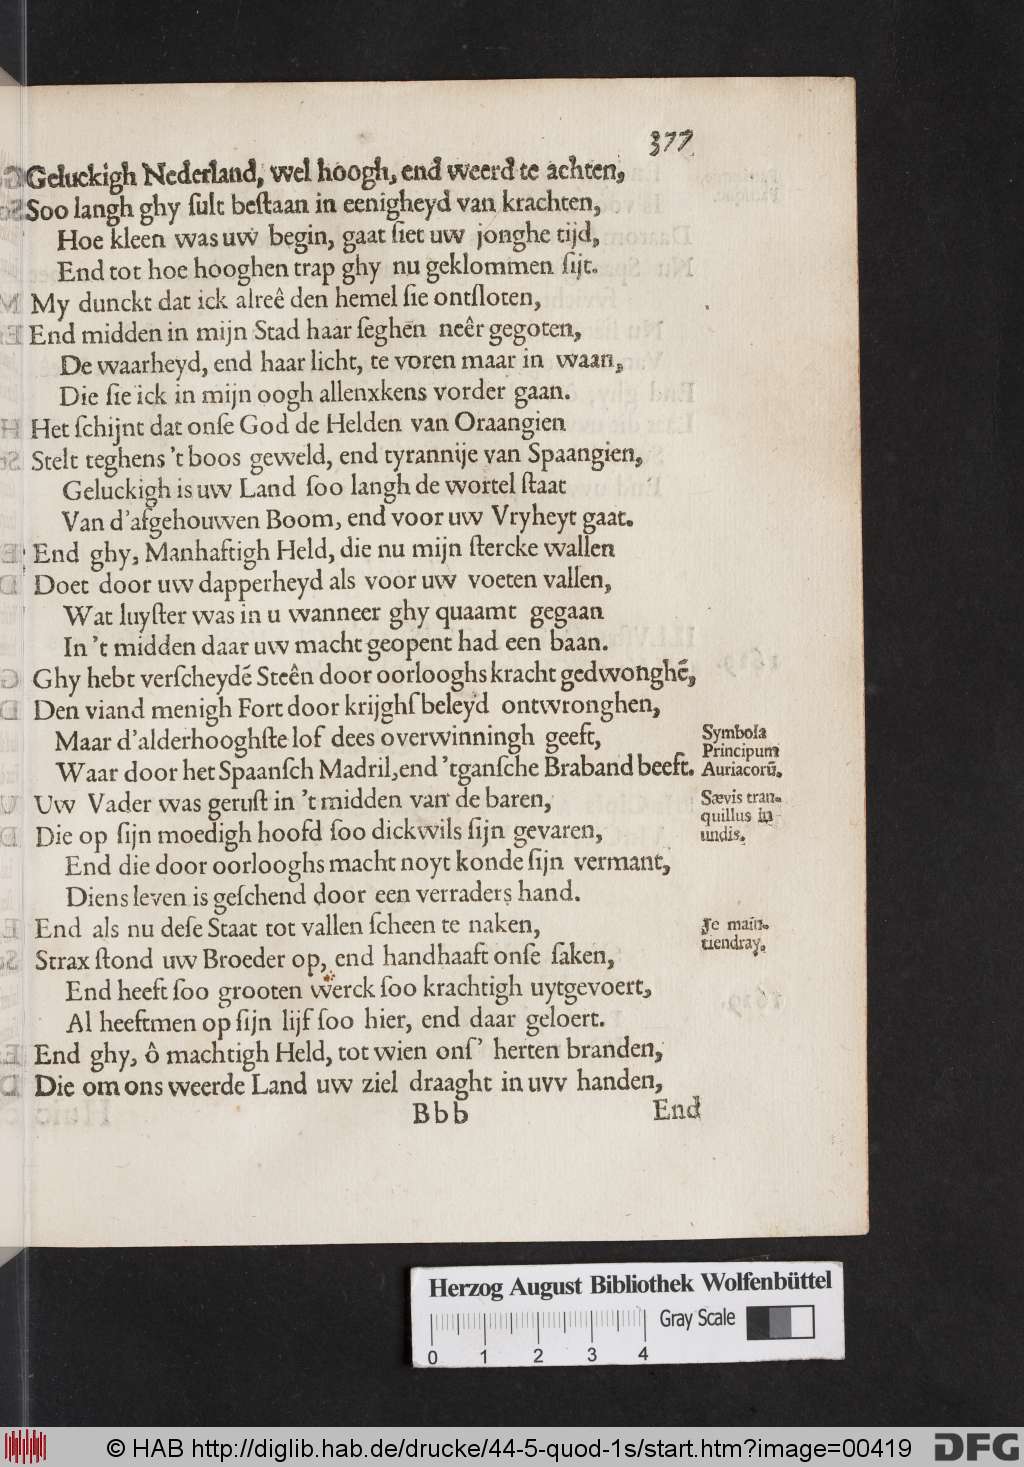 377
Geluckigh Nederland, wel hoogh, end weerd te achten,
Soo langh ghy ſult beſtaan in eenigheyd van krachten,
Hoe kleen was uw begin, gaat ſiet uw jonghe tijd,
End tot hoe hooghen trap ghy nu geklommen ſijt.
My dunckt dat ick alreê den hemel ſie ontſloten,
End midden in mijn Stad haar ſeghen neêr gegoten,
De waarheyd, end haar licht, te voren maar in waan,
Die ſie ick in mijn oogh allenxkens vorder gaan.
Het ſchijnt dat onſe God de Helden van Oraangien
Stelt teghens 't boos geweld, end tyrannije van Spaangien,
Geluckigh is uw Land ſoo langh de wortel ſtaat
Van d'afgehouwen Boom, end voor uw Vryheyt gaat.
End ghy, Manhaftigh Held, die nu mijn ſtercke wallen
Doet door uw dapperheyd als voor uw voeten vallen,
Wat luyſter was in u wanneer ghy quaamt gegaan
In 't midden daar uw macht geopent had een baan.
Ghy hebt verſcheydé Steên door oorlooghs kracht gedwonghẽ,
Den viand menigh Fort door krijghſ beleyd ontwronghen,
Maar d'alderhooghſte lof dees overwinningh geeft,
Waar door het Spaanſch Madril, end 'tganſche Braband beeft.
Symbola
Principum
Auriacorũ.
Uw Vader was geruſt in 't midden van de baren,
Die op ſijn moedigh hoofd ſoo dickwils ſijn gevaren,
End die door oorlooghs macht noyt konde ſijn vermant,
Diens leven is geſchend door een verraders hand.
Sævis tran-
quillus in
undis.
End als nu deſe Staat tot vallen ſcheen te naken,
Strax ſtond uw Broeder op, end handhaaft onſe ſaken,
End heeft ſoo grooten werck ſoo krachtigh uytgevoert,
Al heeftmen op ſijn lijf ſoo hier, end daar geloert.
Je main-
tiendray.
End ghy, ô machtigh Held, tot wien onſ' herten branden,
Die om ons weerde Land uw ziel draaght in uvv handen,
Bbb
End
Herzog August Bibliothek Wolfenbüttel
Gray Scale
0 1 2 3 4
© HAB http://diglib.hab.de/drucke/44-5-quod-1s/start.htm?image=00419
DFG